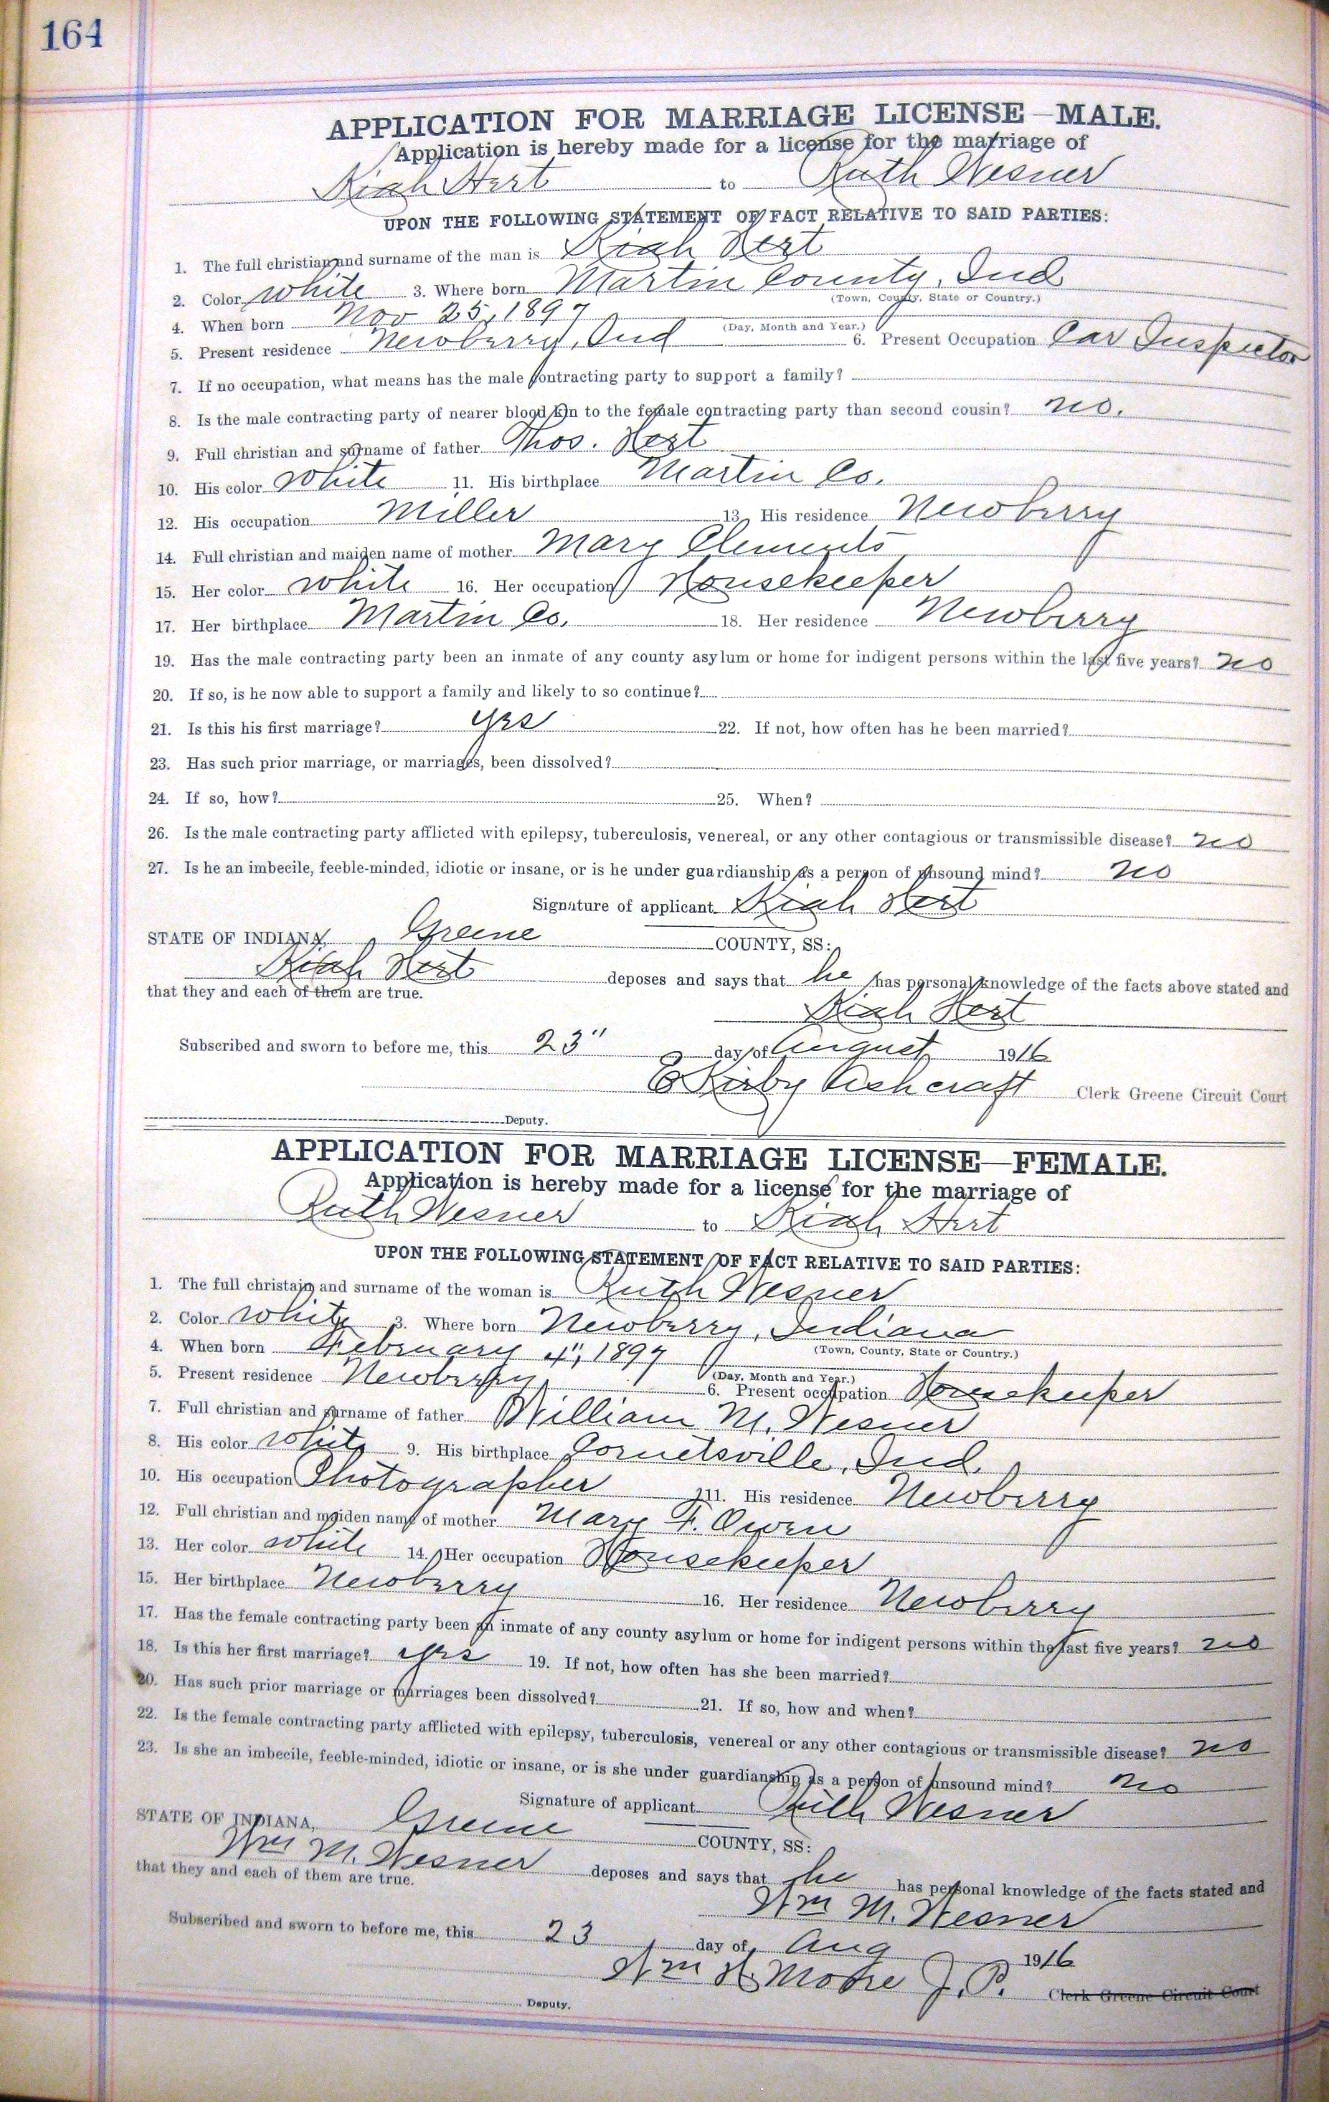 164
APPLICATION FOR MARRIAGE LICENSE—MALE.
Application is hereby made for a license for the marriage of
Kiah Hert to Ruth Wesner
UPON THE FOLLOWING STATEMENT OF FACT RELATIVE TO SAID PARTIES:
1. The full christian and surname of the man is Kiah Hert
2. Color white 3. Where born Martin County, Ind
(Town, County, State or Country.)
4. When born Nov 25, 1897
(Day, Month and Year.)
5. Present residence Newberry, Ind 6. Present Occupation Car Inspector
7. If no occupation, what means has the male contracting party to support a family?
8. Is the male contracting party of nearer blood kin to the female contracting party than second cousin? no.
9. Full christian and surname of father Thos. Hert
10. His color white 11. His birthplace Martin Co.
12. His occupation Miller 13. His residence Newberry
14. Full christian and maiden name of mother Mary Clements
15. Her color white 16. Her occupation Housekeeper
17. Her birthplace Martin Co. 18. Her residence Newberry
19. Has the male contracting party been an inmate of any county asylum or home for indigent persons within the last five years? no
20. If so, is he now able to support a family and likely to so continue?
21. Is this his first marriage? yes 22. If not, how often has he been married?
23. Has such prior marriage, or marriages, been dissolved?
24. If so, how? 25. When?
26. Is the male contracting party afflicted with epilepsy, tuberculosis, venereal, or any other contagious or transmissible disease? no
27. Is he an imbecile, feeble-minded, idiotic or insane, or is he under guardianship as a person of unsound mind? no
Signature of applicant Kiah Hert
STATE OF INDIANA, Greene COUNTY, SS:
Kiah Hert deposes and says that he has personal knowledge of the facts above stated and
that they and each of them are true.
Kiah Hert
Subscribed and sworn to before me, this 23" day of August 1916
E Kirby Ashcraft Clerk Greene Circuit Court
Deputy.
APPLICATION FOR MARRIAGE LICENSE—FEMALE.
Application is hereby made for a license for the marriage of
Ruth Wesner to Kiah Hert
UPON THE FOLLOWING STATEMENT OF FACT RELATIVE TO SAID PARTIES:
1. The full christain and surname of the woman is Ruth Wesner
2. Color white 3. Where born Newberry, Indiana
(Town, County, State or Country.)
4. When born February 4", 1897
(Day, Month and Year.)
5. Present residence Newberry 6. Present occupation Housekeeper
7. Full christian and surname of father William M. Wesner
8. His color white 9. His birthplace Cornetsville, Ind.
10. His occupation Photographer 11. His residence Newberry
12. Full christian and maiden name of mother Mary F. Owen
13. Her color white 14. Her occupation Housekeeper
15. Her birthplace Newberry 16. Her residence Newberry
17. Has the female contracting party been an inmate of any county asylum or home for indigent persons within the last five years? no
18. Is this her first marriage? yes 19. If not, how often has she been married?
20. Has such prior marriage or marriages been dissolved? 21. If so, how and when?
22. Is the female contracting party afflicted with epilepsy, tuberculosis, venereal or any other contagious or transmissible disease? no
23. Is she an imbecile, feeble-minded, idiotic or insane, or is she under guardianship as a person of unsound mind? no
Signature of applicant Ruth Wesner
STATE OF INDIANA, Greene COUNTY, SS:
Wm M. Wesner deposes and says that he has personal knowledge of the facts stated and
that they and each of them are true.
Wm M. Wesner
Subscribed and sworn to before me, this 23 day of Aug 1916
Wm H. Moore J.P. Clerk Greene Circuit Court
Deputy.